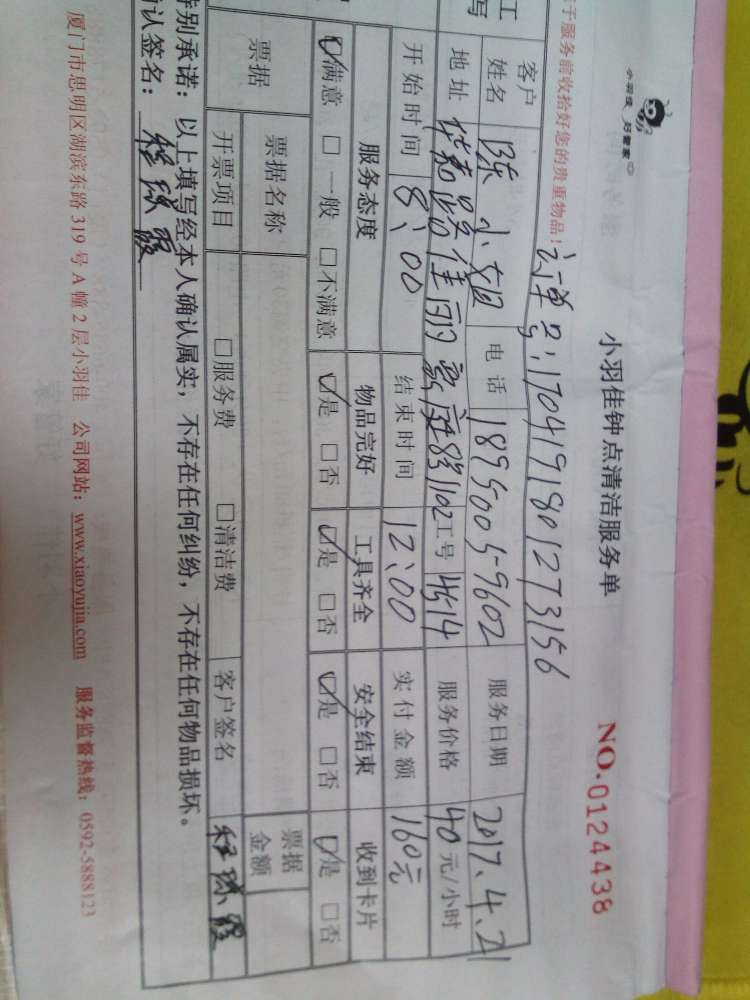 小羽佳 好管家
小羽佳钟点清洁服务单
NO.0124438
于服务前收拾好您的贵重物品！
订单号:1704191801273156
客户姓名 陈小姐 电话 18950059602 服务日期 2017.4.21
地址 佳丽豪庭 1102 工号 4514 服务价格 40元/小时
开始时间 8:00 结束时间 12:00 实付金额 160元
服务态度 物品完好 工具齐全 安全结束 收到卡片
☑满意 □一般 □不满意 ☑是 □否 ☑是 □否 ☑是 □否 ☑是 □否
票据 票据名称 票据金额
开票项目 □服务费 □清洁费 客户签名
特别承诺：以上填写经本人确认属实，不存在任何纠纷，不存在任何物品损坏。
确认签名：
厦门市思明区湖滨东路 319 号 A 幢 2 层小羽佳 公司网站：www.xiaoyujia.com 服务监督热线：0592-5888123